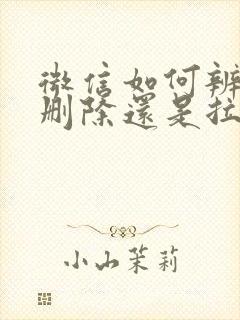 微信如何辨
删除還是拉
小山茉莉